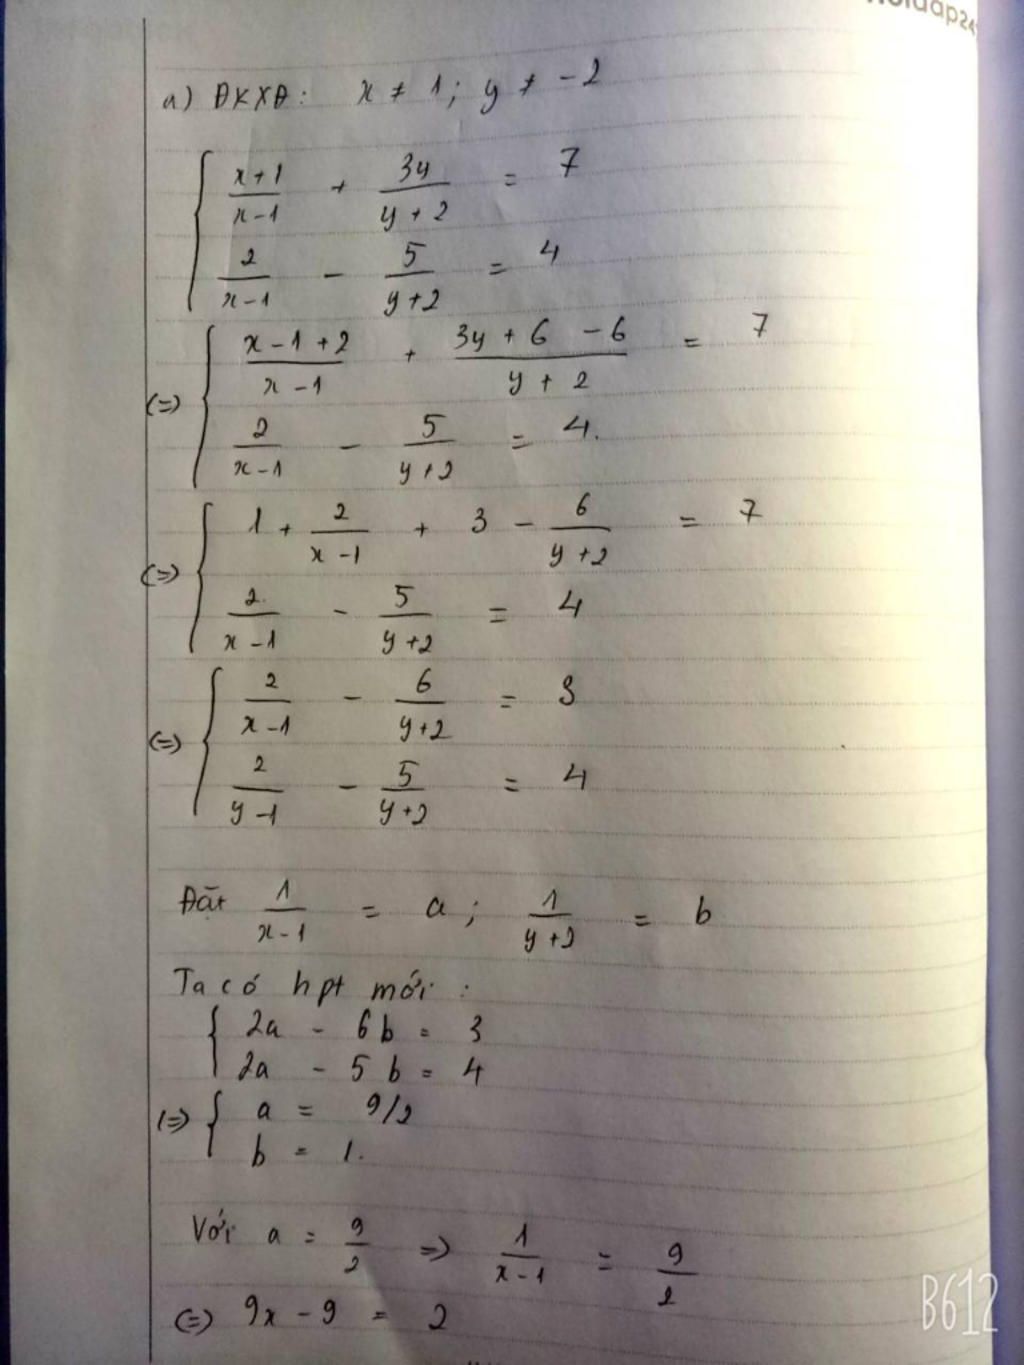 a) ĐKXĐ: x ≠ 1; y ≠ -2
{ (x+1)/(x-1) + 3y/(y+2) = 7
2/(x-1) - 5/(y+2) = 4
(=) { (x-1+2)/(x-1) + (3y+6-6)/(y+2) = 7
2/(x-1) - 5/(y+2) = 4.
(=) { 1 + 2/(x-1) + 3 - 6/(y+2) = 7
2/(x-1) - 5/(y+2) = 4
(=) { 2/(x-1) - 6/(y+2) = 3
2/(y-1) - 5/(y+2) = 4
Đặt 1/(x-1) = a; 1/(y+2) = b
Ta có hpt mới:
{ 2a - 6b = 3
2a - 5b = 4
(=) { a = 9/2
b = 1.
Với a = 9/2 => 1/(x-1) = 9/2
(=) 9x - 9 = 2
B612